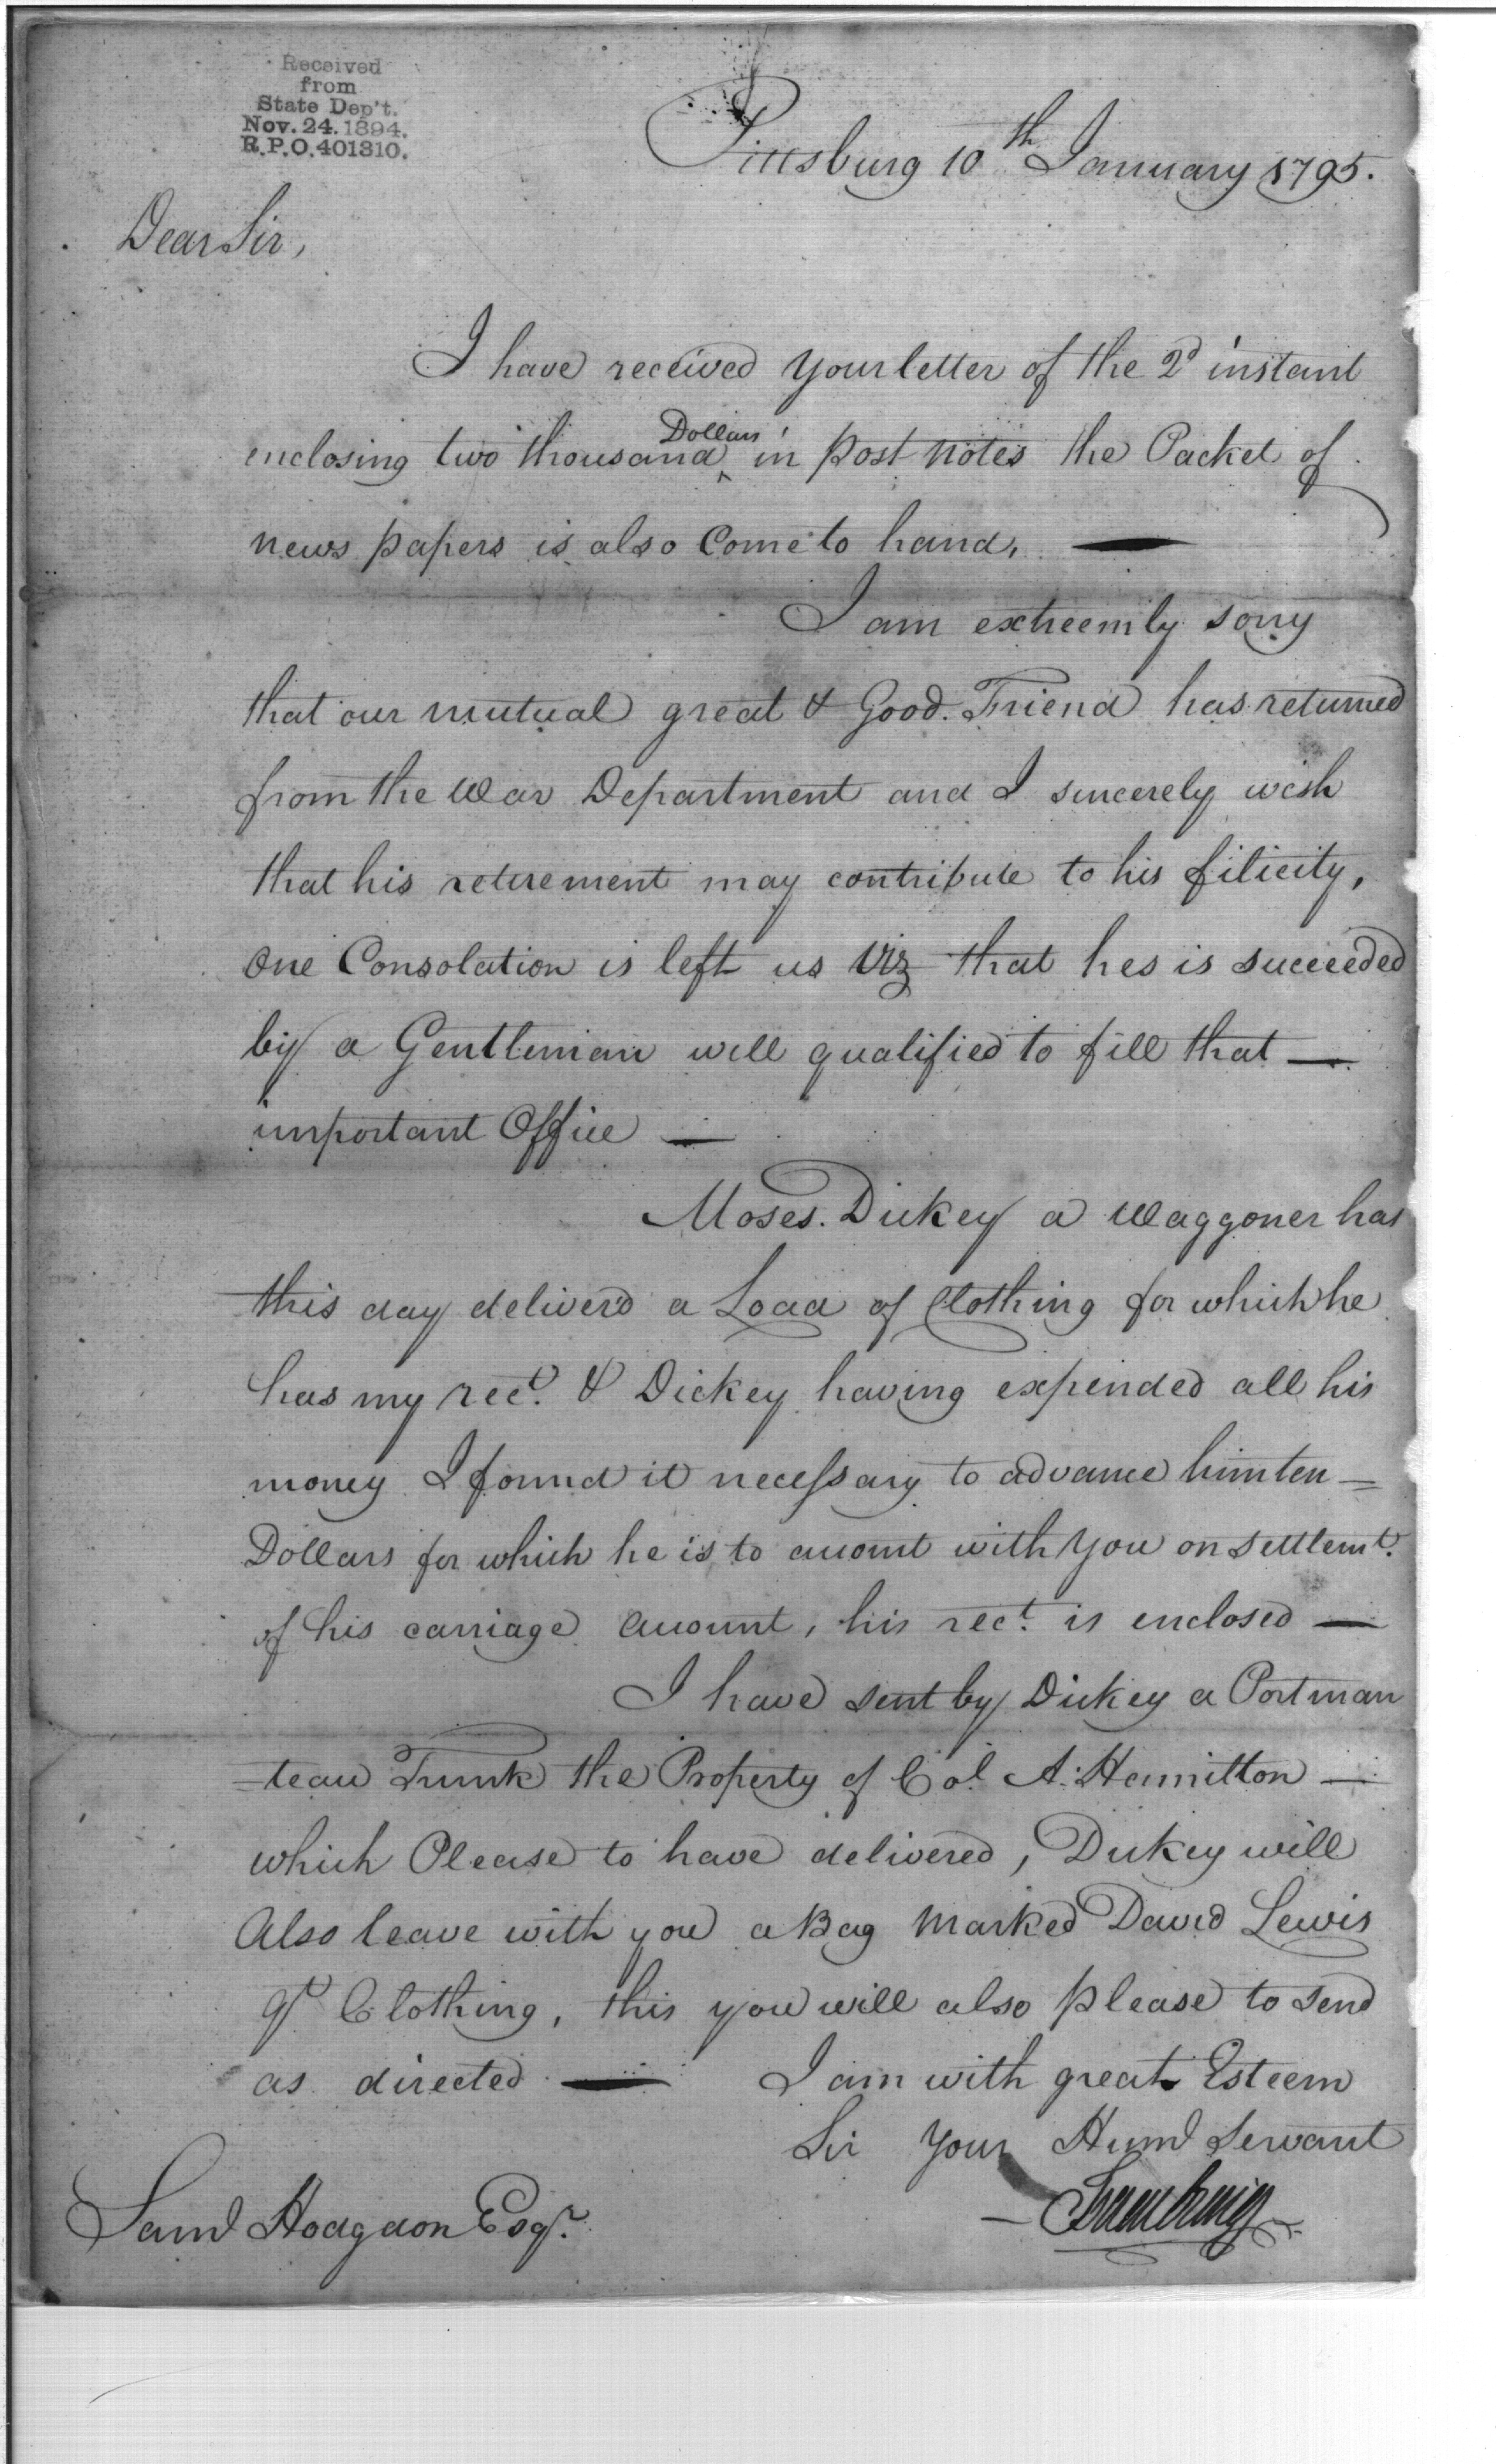 Received
from
State Dep't.
Nov. 24. 1894.
R.P.O. 401310.
Pittsburg 10th January 1795.
Dear Sir,
I have received your letter of the 2d instant
enclosing two thousand Dollars in post notes the Packet of
news papers is also Come to hand,
I am extreemly sorry
that our mutual great & Good Friend has returned
from the War Department and I sincerely wish
that his retirement may contribute to his filicity,
one Consolation is left us Viz that hes is succeeded
by a Gentleman well qualified to fill that —
important Office —
Moses Dickey a Waggoner has
this day deliver'd a Load of Clothing for which he
has my rect. & Dickey having expended all his
money I found it necessary to advance him ten =
Dollars for which he is to account with you on settlemt.
of his carriage account, his rect. is enclosed —
I have sent by Dickey a Portman
=teau Trunk the Property of Col A. Hamilton —
which Please to have delivered, Dickey will
Also leave with you a Bag Marked David Lewis
Clothing, this you will also please to send
as directed — I am with great Esteem
Sir your Huml Servant
Saml Hodgdon Esqr.